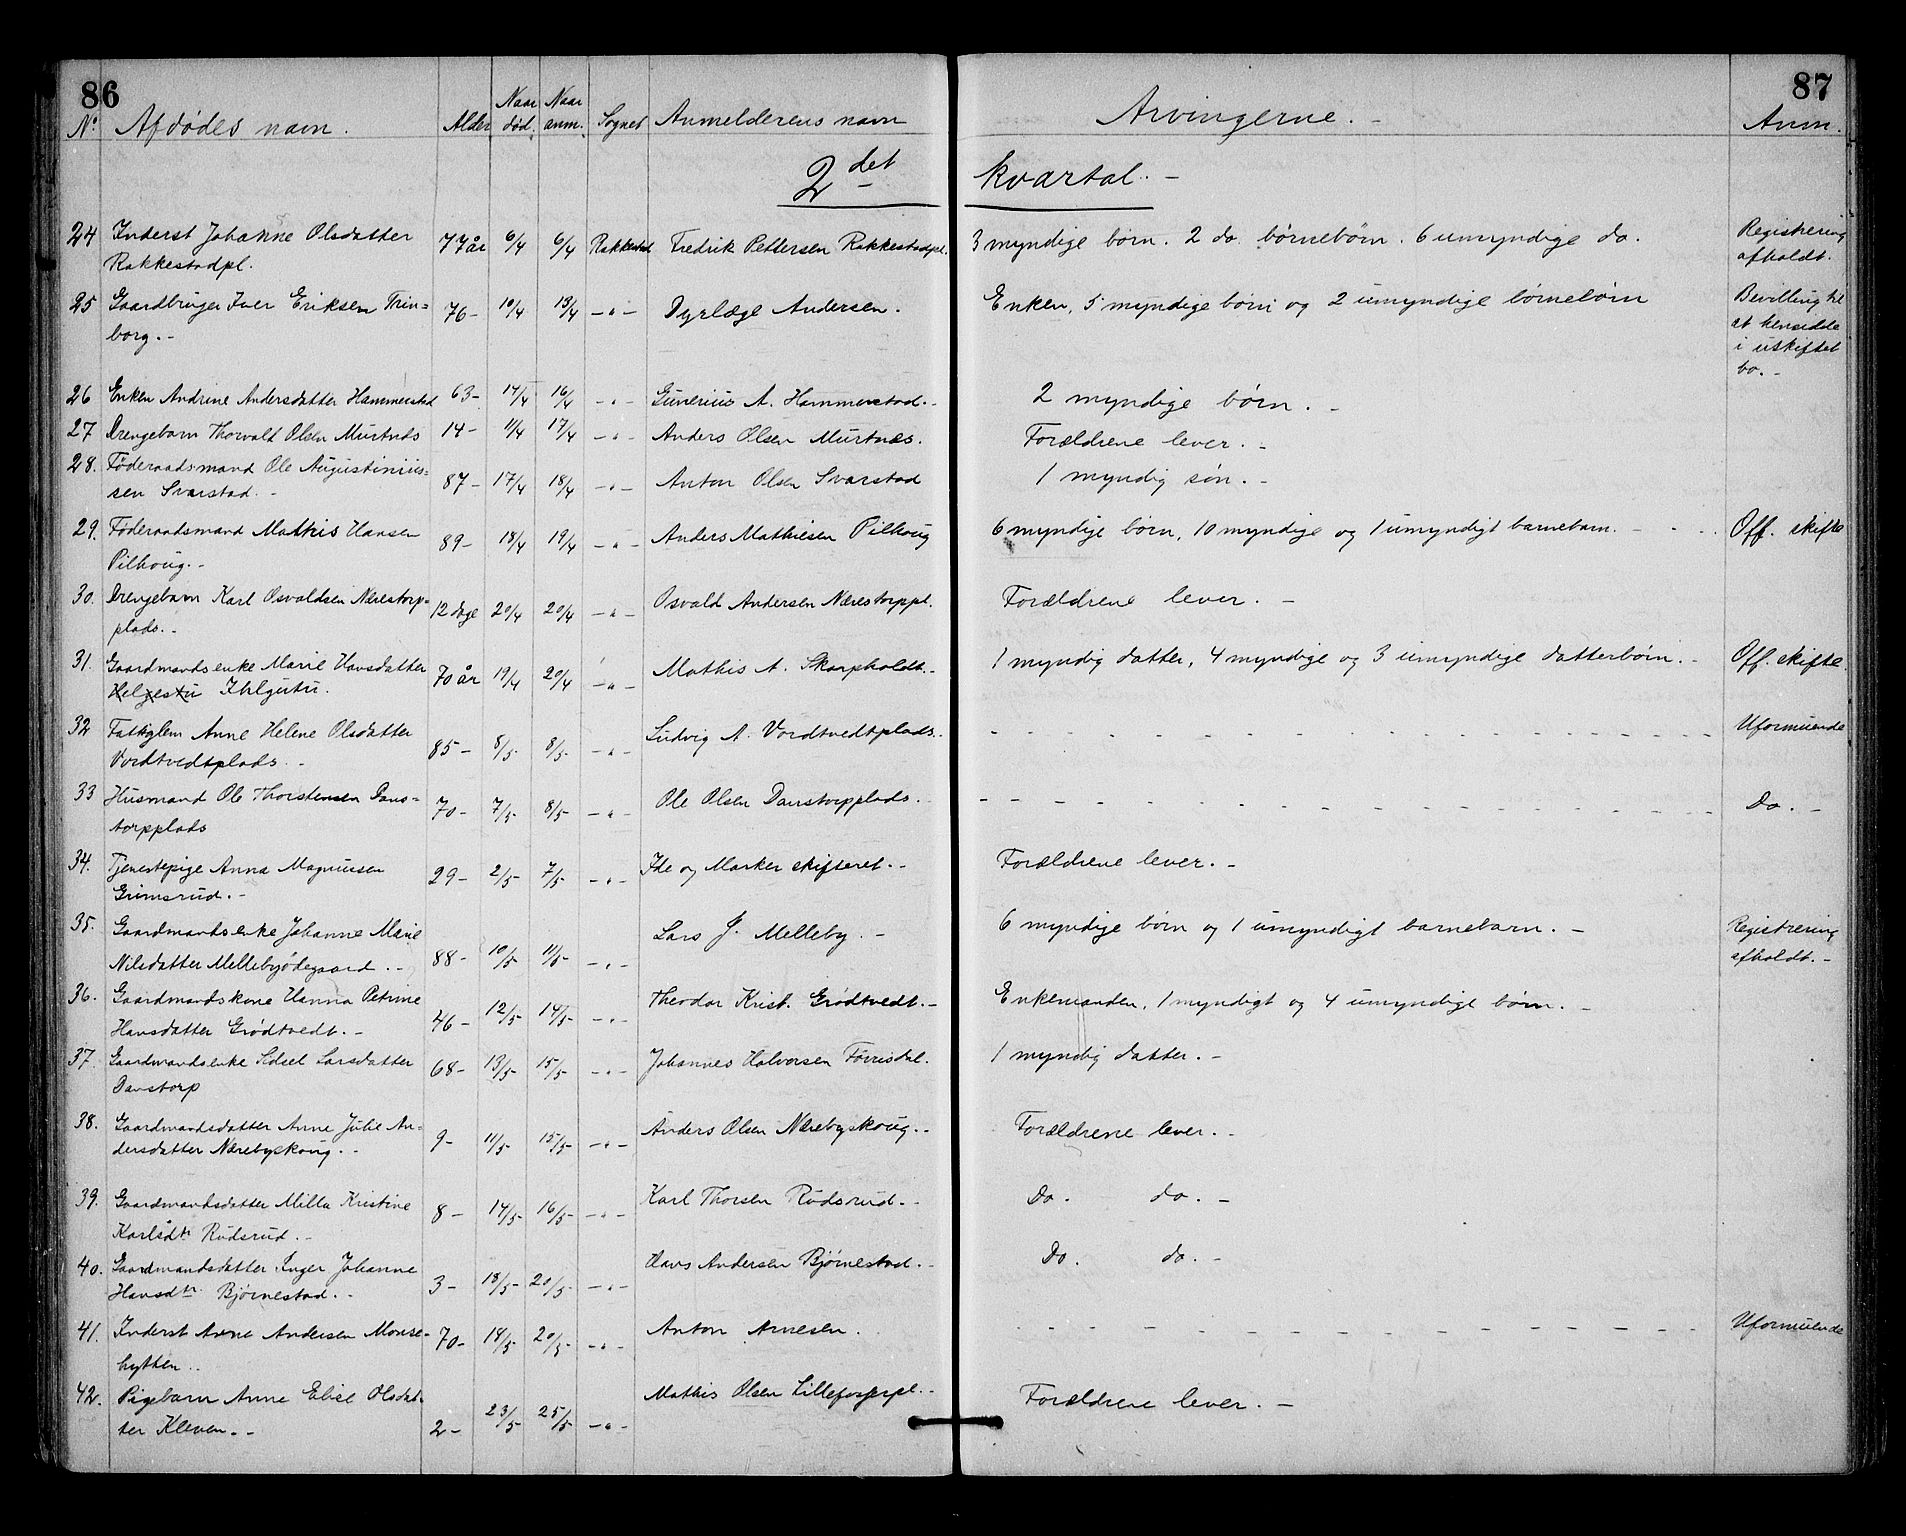 86
87
No Afdødes navn. Alder Naar død. Naar anm. Sognet Anmelderens navn Arvingerne. - Anm.
2det kvartal. -
24 Inderst Johanne Olsdatter 77 år 6/4 6/4 Rakkestad Fredrik Pettersen Rakkestadpl. 3 myndige børn. 2 do. børnebørn. 6 umyndige do. Registrering
Rakkestadpl. afholdt.
25 Gaardbruger Iver Eriksen Trin= 76 - 10/4 13/4 - " - Dyrlæge Andersen. Enken, 5 myndige børn og 2 umyndige børnebørn Bevilling til
borg. - at hensidde
i uskiftet
bo. -
26 Enken Andrine Andersdatter Hammerstad 63 - 14/4 16/4 - " - Gunerius A. Hammerstad. - 2 myndige børn. -
27 Drengebarn Thorvald Olsen Murtnæs 14 - 11/4 17/4 - " - Anders Olsen Murtnæs. Forældrene lever. -
28. Føderaadsmand Ole Augustinius= 87 - 17/4 18/4 - " - Anton Olsen Svarstad 1 myndig søn. -
sen Svarstad. -
29. Føderaadsmand Mathis Hansen 89 - 18/4 19/4 - " - Anders Mathiesen Pilhoug 6 myndige børn, 10 myndige og 1 umyndigt barnebarn. - - . Off. skifte
Pilhoug. -
30. Drengebarn Karl Osvaldsen Nærestorp= 12 dage 20/4 20/4 - " - Osvald Andersen Nærestorppl. Forældrene lever. -
plads. -
31. Gaardmandsenke Marie Hansdatter 70 år 19/4 20/4 - " - Mathis A. Skarpholdt. - 1 myndig datter, 4 myndige og 3 umyndige datterbørn. - Off. skifte.
Helgestu Ihlgutu.
32 Fattiglem Anne Helene Olsdatter 85 - 8/5 8/5 - " - Ludvig A. Vordtvedtplads. - - - - - - Uformuende
Vordtvedtplads. -
33 Husmand Ole Thorstensen Dans= 70 - 7/5 8/5 - " - Ole Olsen Danstorpplads. - - - - - - Do. -
torpplads
34. Tjenestepige Anna Magnusen 29 - 2/5 7/5 - " - Ide og Marker skifteret. - Forældrene lever. -
Grimsrud. -
35. Gaardmandsenke Johanne Marie 88 - 10/5 11/5 - " - Lars J. Melleby. - 6 myndige børn og 1 umyndigt barnebarn. - Registrering
Nilsdatter Mellebyødegaard. - afholdt. -
36. Gaardmandskone Hanna Petrine 46 - 12/5 14/5 - " - Theodor Krist. Grødtvedt. - Enkemanden, 1 myndigt og 4 umyndige børn. -
Hansdatter Grødtvedt. -
37. Gaardmandsenke Sidsel Larsdatter 68 - 13/5 15/5 - " - Johannes Halvorsen 1 myndig datter. -
Danstorp
38. Gaardmandsdatter Anne Julie An= 9 - 11/5 15/5 - " - Anders Olsen Nærebyskoug. - Forældrene lever. -
dersdatter Nærebyskoug. -
39. Gaardmandsdatter Milla Kristine 8 - 14/5 16/5 - " - Karl Thorsen Rudsrud. - Do. do. -
Karlsdtr Rudsrud. -
40. Gaardmandsdatter Inger Johanne 3 - 18/5 20/5 - " - Hans Andersen Bjørnestad. - Do. do. -
Hansdtr. Bjørnestad. -
41. Inderst Arne Andersen Monse= 70 - 18/5 20/5 - " - Anton Arnesen. - - - - - Uformuende
hytten. -
42. Pigebarn Anne Elise Olsdat= 2 - 23/5 25/5 - " - Mathis Olsen - Forældrene lever. -
ter Kleven. -